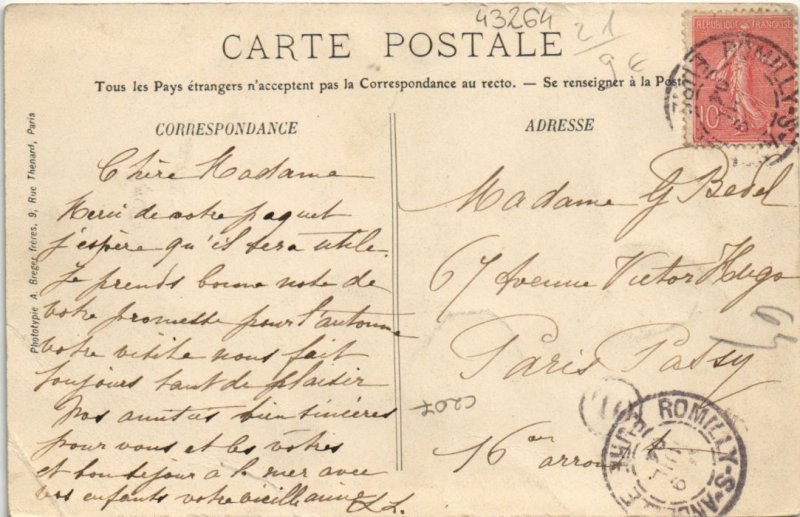 43264
21/
9€
CARTE POSTALE
Tous les Pays étrangers n'acceptent pas la Correspondance au recto. — Se renseigner à la Poste
RÉPUBLIQUE FRANÇAISE
10
ROMILLY-S-
EURE
CORRESPONDANCE
Chère Madame
Merci de votre paquet
j'espère qu'il sera utile.
Je prends bonne note de
votre promesse pour l'automne
votre visite nous fait
toujours tant de plaisir
Nos amitiés bien sincères
pour vous et les vôtres
et bon séjour à la mer avec
vos enfants votre vieille amie
LL.
ADRESSE
Madame G Bedel
67 Avenue Victor Hugo
Paris Passy
16 arron
64
C207
ROMILLY-S-ANDELLE
EURE
Phototypie A. Breger frères, 9, Rue Thenard, Paris